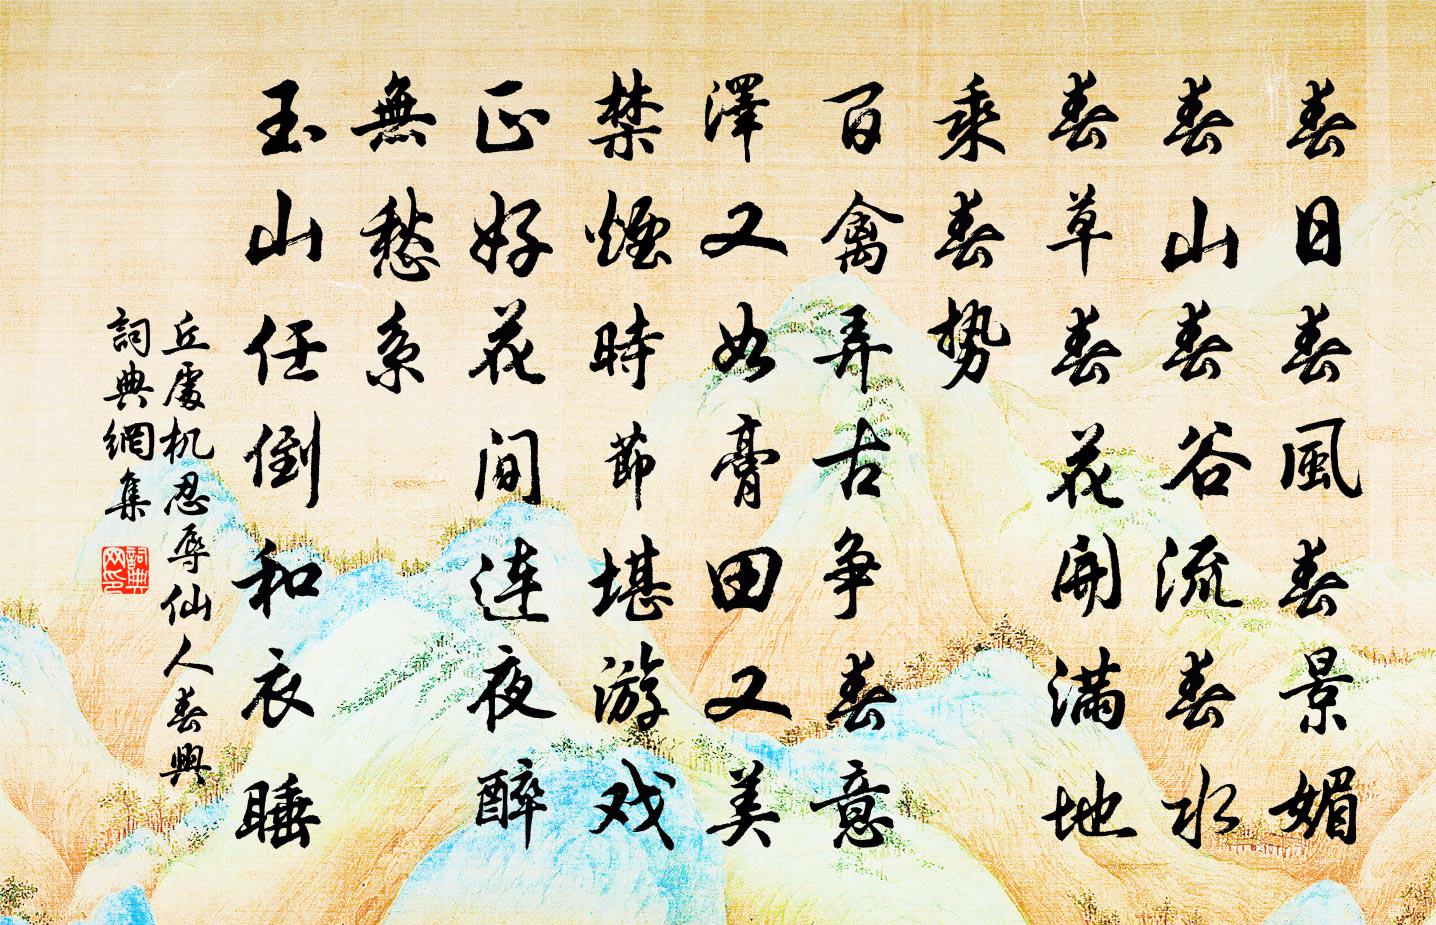 春日春風春景媚
春山春谷流春水
春草春花開滿地
乘春勢
百禽弄古争春意
澤又如膏田又美
禁煙時節堪游戏
正好花間连夜醉
無愁系
玉山任倒和衣睡
丘處机忍辱仙人春興
詞典網集
詞典网印